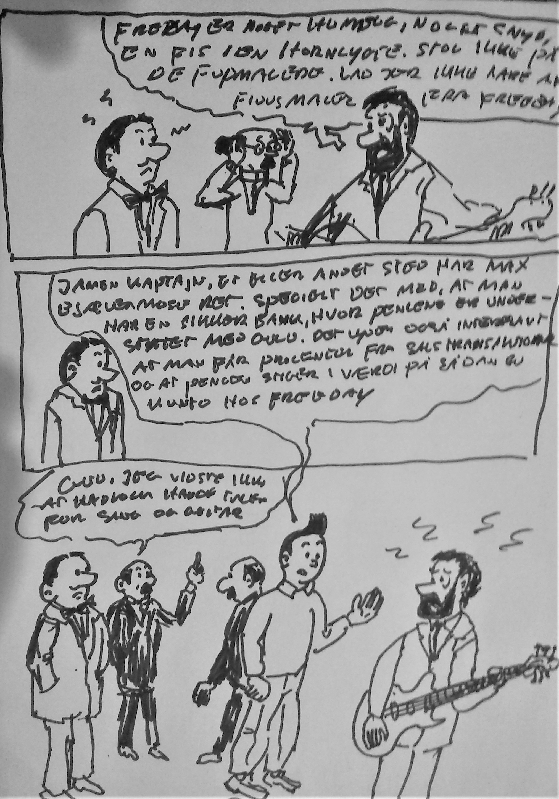 FREEBAY ER NOGET HUMBUG, NOGET SNYD,
EN FIS I EN HORNLYGTE. STOL IKKE PÅ
DE FUPMAGERE. LAD JER IKKE
FUSKMAGER FRA FREEBAY
JAMEN KAPTAJN, ET ELLER ANDET STED HAR MAX
BJÆVERMOSE RET. SPECIELT DET MED, AT MAN
HAR EN SIKKER BANK, HVOR PENGENE ER UNDER-
STØTTET MED GULD. DET LYDER OGSÅ INTERESSANT
AT MAN FÅR PROCENTER FRA SINE TRANSAKTIONER
OG AT PENGEN STIGER I VÆRDI PÅ SÅDAN EN
KONTO HOS FREEBAY
GUD, JEG VIDSTE IKKE
AT HADDOCK HAVDE TALENT
FOR SANG OG GUITAR